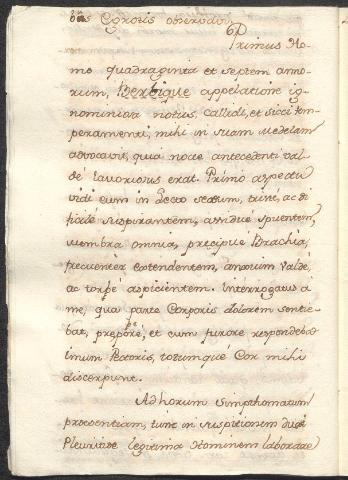 bus Egrotis observavi.
Primus Ho-
mo quadraginta et septem anno-
rum, Berbique appelatione ig-
nominiori notus, callidi, et sicci tem-
peramenti, mihi in suam medelam
advocavit, quia nocte antecedenti val-
dè lavoriosus erat. Primo aspectu
vidi eum in Lecto sedtum, tunc, ac di-
ficilè suspirantem, assiduè sputentem,
membra omnia, precipuè Brachia,
frecuenter extendentem, anxium valdè,
ac torpè aspicientem. Interrogatus à
me, qua parte Corporis dolorem sentie-
bat, preporè, et cum furore respondebat
imum Pectoris, totumquè Cor mihi
discerpunt.
Ad horum simpthomatum
presentiam, tunc in suspitionem duxi
Pleuritide legitima Hominem laborare